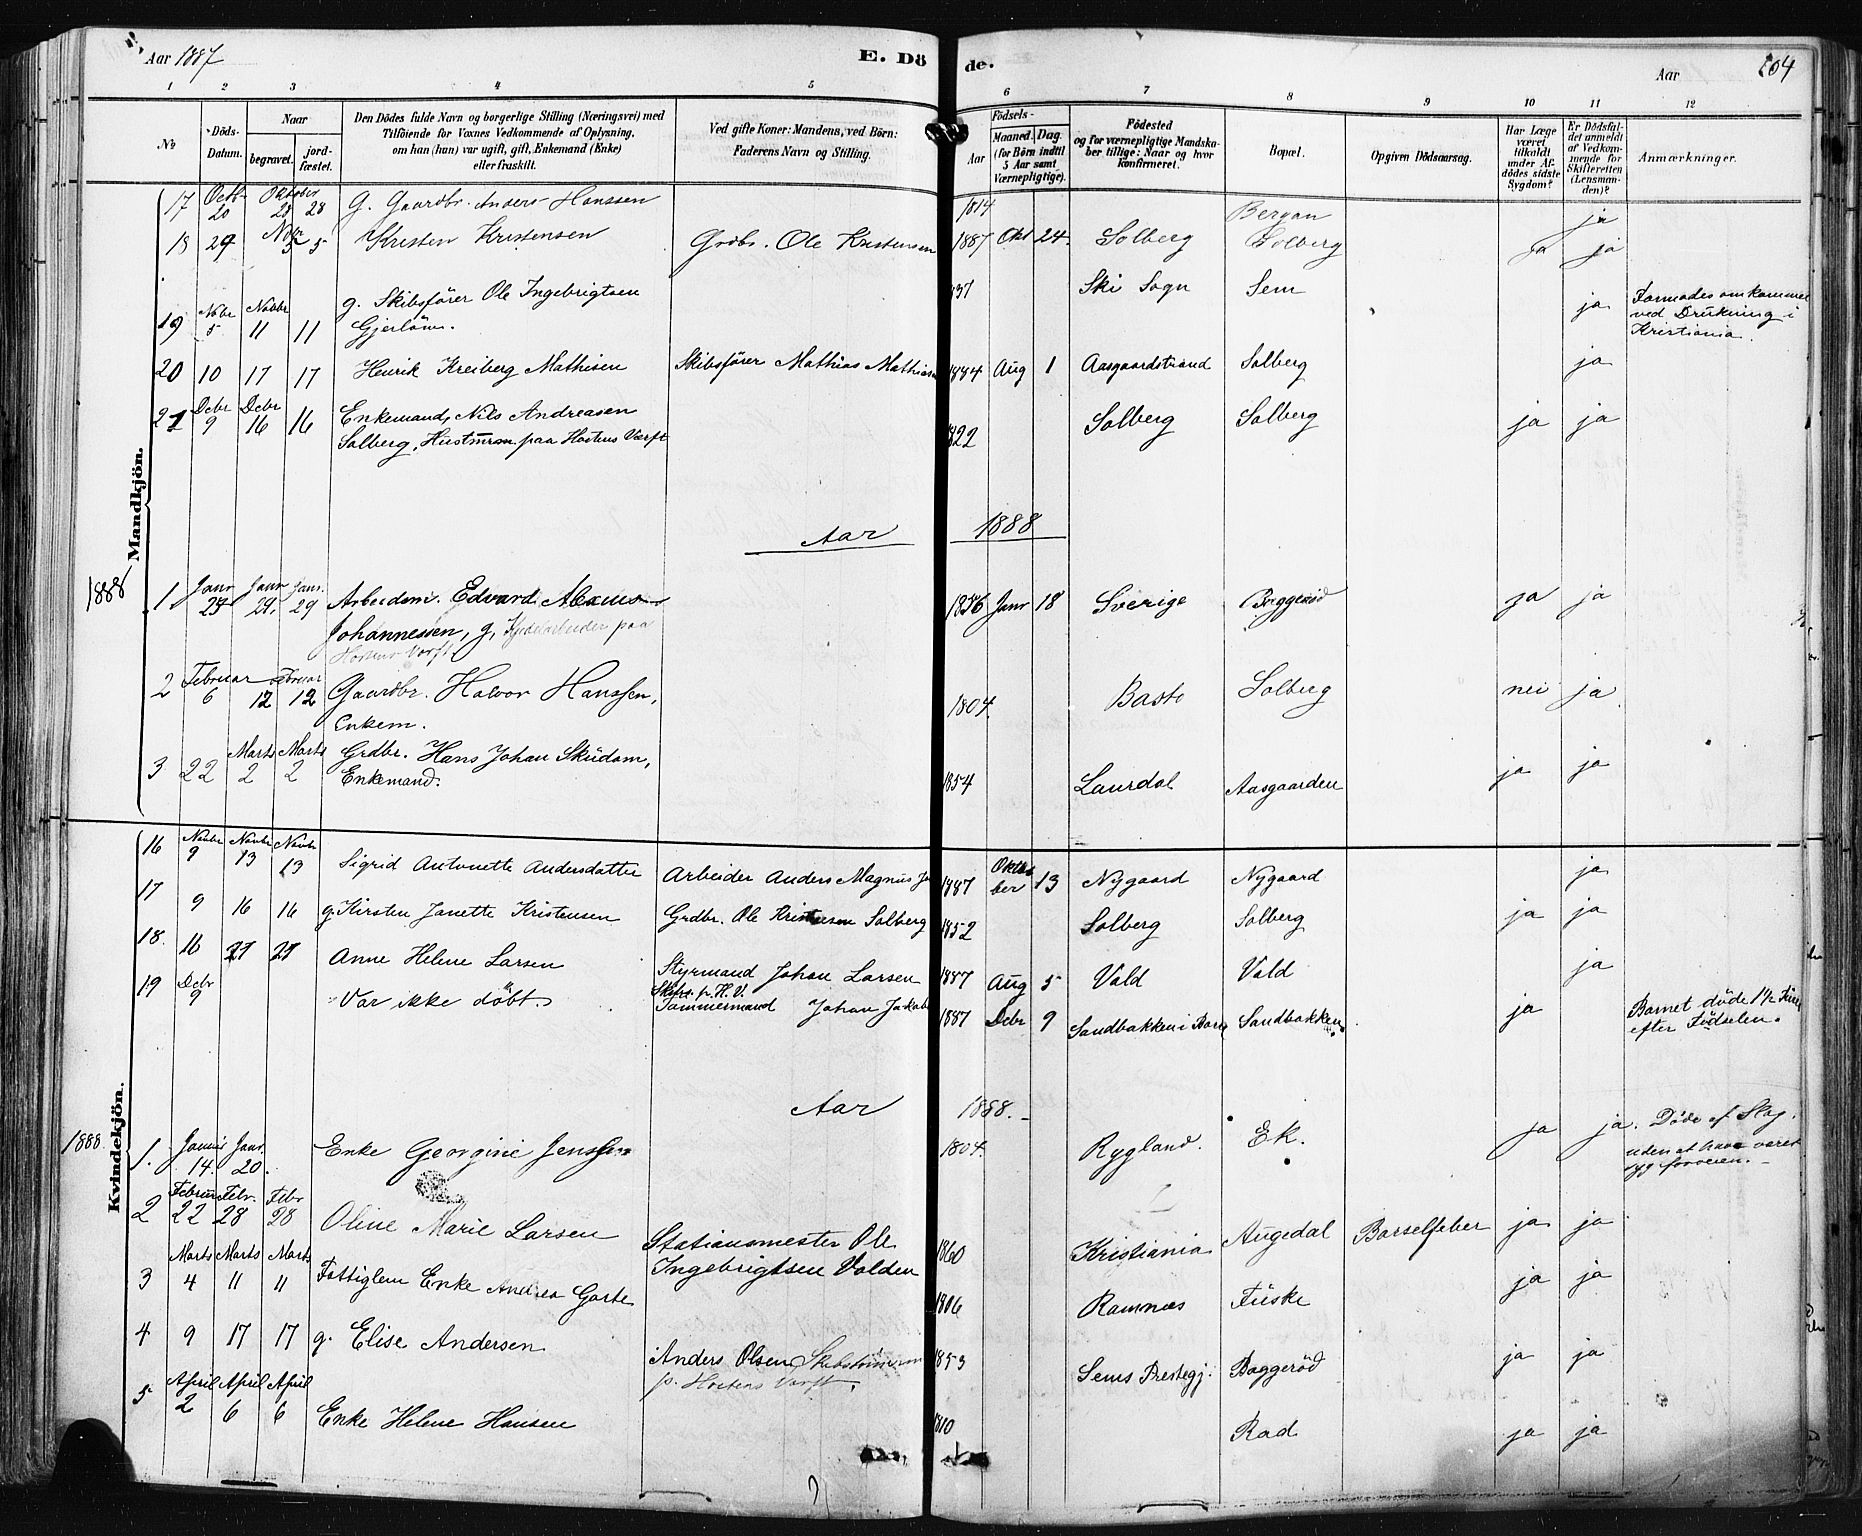 Aar 1887 E. Dö de. Aar 204
1 2 3 4 5 6 7 8 9 10 11 12
No Döds-Datum. Naar begravet. jord-fæstet. Den Dödes fulde Navn og borgerlige Stilling (Næringsvei) med Tilföiende for Voxnes Vedkommende af Oplysning, om han (hun) var ugift, gift, Enkemand (Enke) eller fraskilt. Ved gifte Koner: Mandens, ved Börn: Faderens Navn og Stilling. Födsels- Aar Maaned. Dag. (for Börn indtil 5 Aar samt Værnepligtige). Födested og for værnepligtige Mandskaber tillige: Naar og hvor konfirmeret. Bopæl. Opgiven Dödsaarsag. Har Læge været tilkaldt under Afdödes sidste Sygdom? Er Dödsfaldet anmeldt af Vedkommende for Skifteretten (Lensmanden)? Anmærkninger.
Mandkjön.
17 Octb 20 Oktober 28 28 g. Gaardbr. Anders Hanssen 1814 Bergan ja
18 24 Nobr 5 5 Kristen Kristensen Grdbr. Ole Kristensen 1887 Okt 24. Solberg Solberg ja ja
19 Nobr 5 Novbr 11 11 g. Skibsförer Ole Ingebrigtsen 37 Ski Sogn Sem ja Formodes omkommet
Gjerlöw. ved Drukning i
Kristiania.
20 10 17 17 Henrik Kreiberg Mathisen Skibsförer Mathias Mathias 1884 Aug 1 Aasgaardstrand Solberg ja
21 Dcbr 9 Dcbr 16 16 Enkemand, Nils Andreasen 1822 Solberg Solberg ja ja
Solberg, Hustömrm. paa Hortens Værft
Aar 1888
1888 1 Janr 23 Janr 29. Janr. 29 Arbeidsm. Edvard 1856 Janr 18 Sverige ja ja
Johannessen, g. paa
Hortens Værft
2 Februar 6 12 Februar 12 Gaardbr. Halvor Hanssen, 1804. Basto Solberg nei ja
Enkem.
3 22 Marts 2 Marts 2 Grdbr. Hans Johan 1854 Laurdal Aasgaarden ja ja
Enkemand.
Kvindekjön.
16 Novbr 9 Novbr 13 Novbr 13 Sigrid Antonette Andersdatter Arbeider Anders Magnus 1887 Oktober 13 Nygaard Nygaard ja
17 9 16 16 g. Kirsten Janette Kristensen Grdbr. Ole Kristensen Solberg 1852 Solberg Solberg ja ja
18. 16 27 27 Anne Helene Larsen Styrmand Johan Larsen 1887 Aug 5 Vold Vold ja
19 Dcbr 9 Var ikke döbt. Skibs. p. H. V. Tömmermand Johan Jakob 1887 Dcbr 9 Sandbakken i Borre Sandbakken ja Barnet döde 1½ Time
efter Födselen.
Aar 1888.
1888. 1. Januar 14. Janr. 20. Enke Georgine Jenssen 1804. Rygland. Ek. ja ja. Döde af Slag.
uden at have været
syg forveien.
2 Februar 22 Febr. 28 Febr 28 Oline Marie Larsen Stationsmester Ole 1860 Kristiania Augedal Barselfeber ja ja
Ingebrigtsen Valden
3 Marts 4 Marts 11 Marts 11 Fattiglem Enke Andrea 1806 Ramnæs Fuske ja ja
4 9 17 17 g. Elise Andersen Anders Olsen 1853 Sems Prestegj. Baggeröd ja ja
p. Hortens Værft.
5 April 2 April 6 April 6 Enke Helene Hansen 1810 Rad ja ja